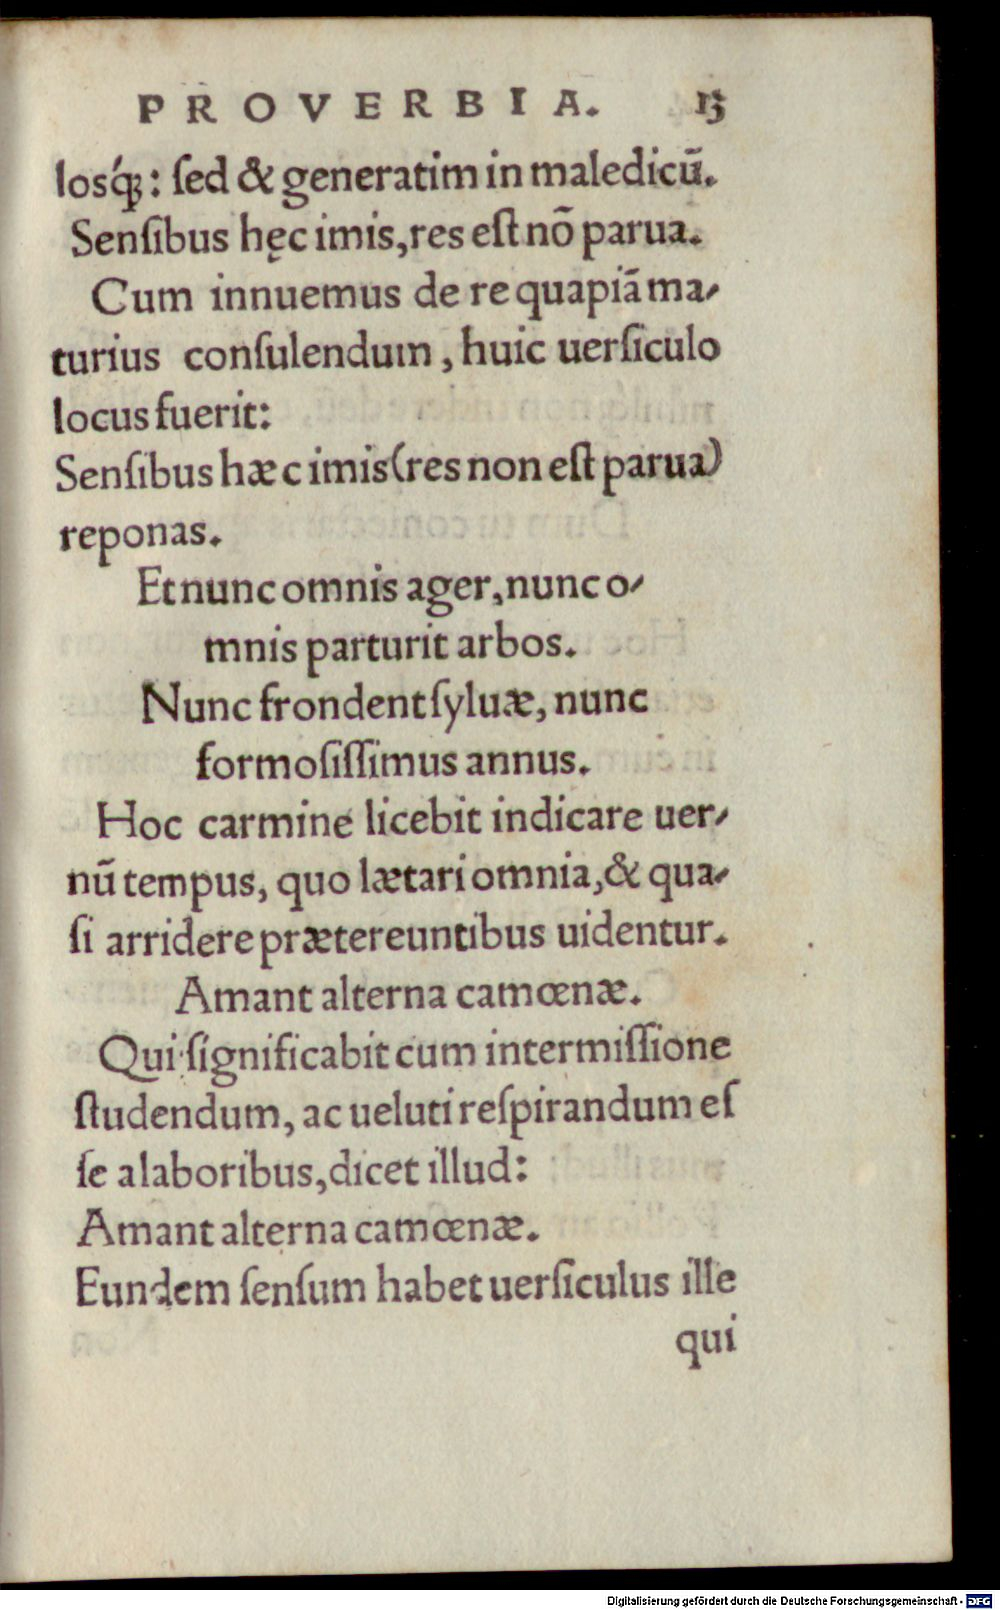 PROVERBIA. 13
losq́ꝫ: ſed & generatim in maledicū.
Senſibus hęc imis, res eſt nō parua.
Cum innuemus de re quapiā ma-
turius conſulendum, huic uerſiculo
locus fuerit:
Senſibus hæc imis (res non eſt parua)
reponas.
Et nunc omnis ager, nunc o-
mnis parturit arbos.
Nunc frondent ſyluæ, nunc
formoſiſſimus annus.
Hoc carmine licebit indicare uer-
nū tempus, quo lætari omnia, & qua-
ſi arridere prætereuntibus uidentur.
Amant alterna camœnæ.
Qui ſignificabit cum intermiſſione
ſtudendum, ac ueluti reſpirandum eſ
ſe a laboribus, dicet illud:
Amant alterna camœnæ.
Eundem ſenſum habet uerſiculus ille
qui
Digitalisierung gefördert durch die Deutsche Forschungsgemeinschaft - DFG